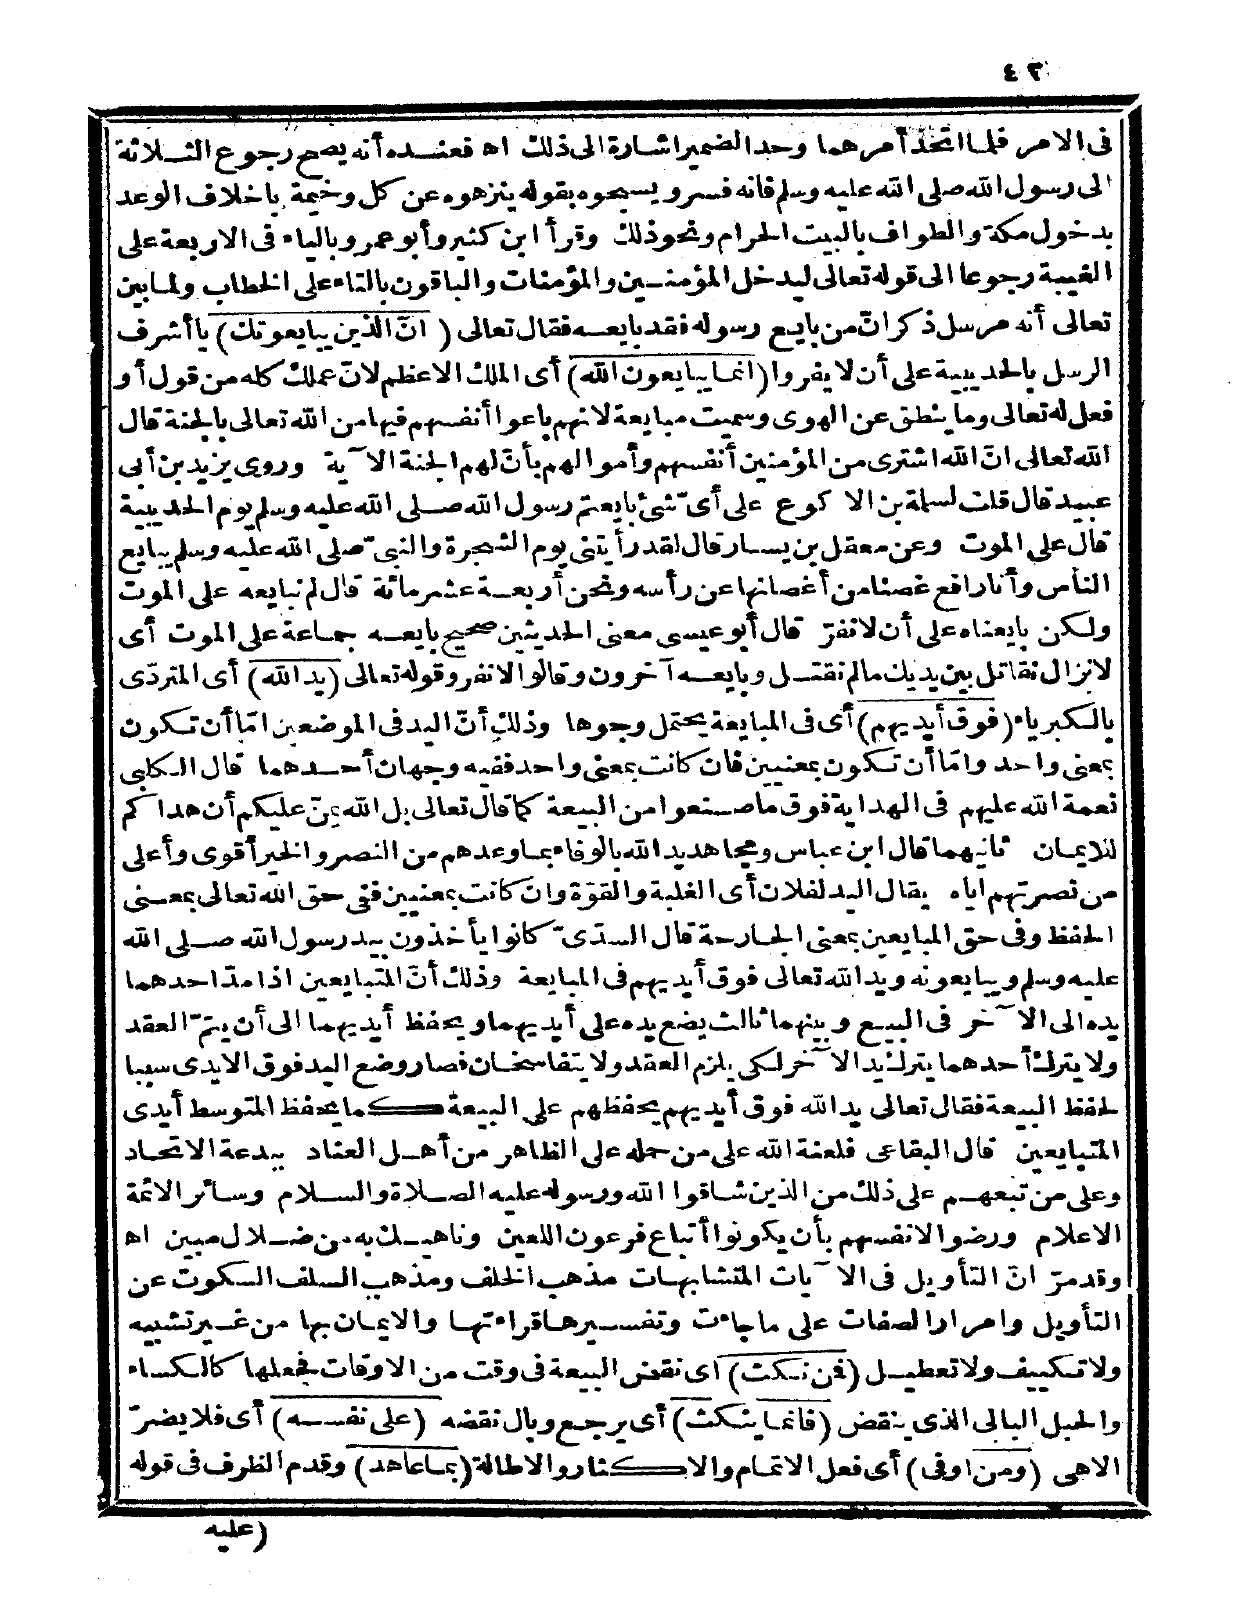 ٤٣
فى الامر فلما اتخذ أمرهما وحد الضمير اشارة الى ذلك اه فعنده أنه يصح رجوع الثلاثة
الى رسول الله صلى الله عليه وسلم فانه فسر ويسبحوه بقوله ينزهوه عن كل وخيمة باخلاف الوعد
بدخول مكة والطواف بالبيت الحرام ونحو ذلك وقرأ ابن كثير وأبو عمرو بالياء فى الاربعة على
الغيبة رجوعا الى قوله تعالى ليدخل المؤمنين والمؤمنات والباقون بالتاء على الخطاب ولما بين
تعالى أنه مرسل ذكر انّ من بايع رسوله فقد بايعه فقال تعالى (انّ الذين يبايعونك) يا أشرف
الرسل بالحديبية على أن لا يفروا (انما يبايعون الله) أى الملك الاعظم لانّ عملك كله من قول أو
فعل له تعالى وما ينطق عن الهوى وسميت مبايعة لانهم باعوا أنفسهم فيها من الله تعالى بالجنة قال
الله تعالى انّ الله اشترى من المؤمنين أنفسهم وأموالهم بأنّ لهم الجنة الآية وروى يزيد بن أبى
عبيد قال قلت لسلمة بن الاكوع على أىّ شئ بايعتم رسول الله صلى الله عليه وسلم يوم الحديبية
قال على الموت وعن معقل بن يسار قال لقد رأيتنى يوم الشجرة والنبىّ صلى الله عليه وسلم يبايع
الناس وأنا رافع غصنا من أغصانها عن رأسه ونحن أربعة عشر مائة قال لم نبايعه على الموت
ولكن بايعناه على أن لا نفرّ قال أبو عيسى معنى الحديثين صحيح بايعه جماعة على الموت أى
لا نزال نقاتل بين يديك مالم نقتل وبايعه آخرون وقالوا لا نفر وقوله تعالى (يد الله) أى المتردّى
بالكبرياء (فوق أيديهم) أى فى المبايعة يحتمل وجوها وذلك أنّ اليد فى الموضعين امّا أن تكون
بمعنى واحد وامّا أن تكون بمعنيين فان كانت بمعنى واحد ففيه وجهان أحدهما قال الكلبى
نعمة الله عليهم فى الهداية فوق ما صنعوا من البيعة كما قال تعالى بل الله يمنّ عليكم أن هداكم
للايمان ثانيهما قال ابن عباس ومجاهد يد الله بالوفاء بما وعدهم من النصر والخير أقوى وأعلى
من نصرتهم اياه يقال اليد لفلان أى الغلبة والقوّة وان كانت بمعنيين ففى حق الله تعالى بمعنى
الحفظ وفى حق المبايعين بمعنى الجارحة قال السدّىّ كانوا يأخذون بيد رسول الله صلى الله
عليه وسلم ويبايعونه ويد الله تعالى فوق أيديهم فى المبايعة وذلك أنّ المتبايعين اذا مدّ احدهما
يده الى الآخر فى البيع وبينهما ثالث يضع يده على أيديهما ويحفظ أيديهما الى أن يتمّ العقد
ولا يترك أحدهما يترك يد الآخر لكى يلزم العقد ولا يتفاسخان فصار وضع اليد فوق الايدى سببا
لحفظ البيعة فقال تعالى يد الله فوق أيديهم يحفظهم على البيعة كما يحفظ المتوسط أيدى
المتبايعين قال البقاعى فلعنة الله على من حمله على الظاهر من أهل العناد ببدعة الاتحاد
وعلى من تبعهم على ذلك من الذين شاقوا الله ورسوله عليه الصلاة والسلام وسائر الائمة
الاعلام ورضوا لانفسهم بأن يكونوا أتباع فرعون اللعين وناهيك به من ضلال مبين اه
وقد مرّ انّ التأويل فى الآيات المتشابهات مذهب الخلف ومذهب السلف السكوت عن
التأويل وامرار الصفات على ما جاءت وتفسيرها قراءتها والايمان بها من غير تشبيه
ولا تكييف ولا تعطيل (فمن نكث) اى نقض البيعة فى وقت من الاوقات فجعلها كالكساء
والحبل البالى الذى ينقض (فانما ينكث) أى يرجع وبال نقضه (على نفسه) أى فلا يضرّ
الاهى (ومن اوفى) أى فعل الاتمام والاكثار والاطالة (بما عاهد) وقدم الظرف فى قوله
(عليه